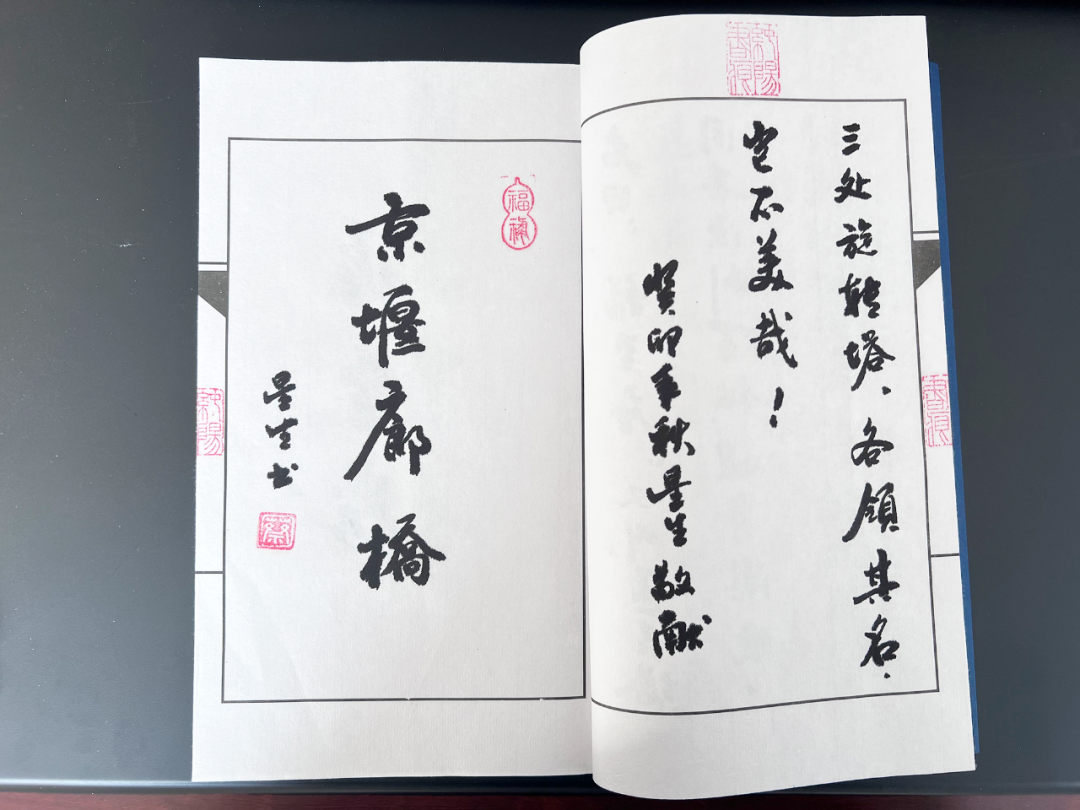 三处旋转塔.各领其名.
岂不美哉！
癸卯年秋星生敬献
京堰廊橋
星生书
福
禄